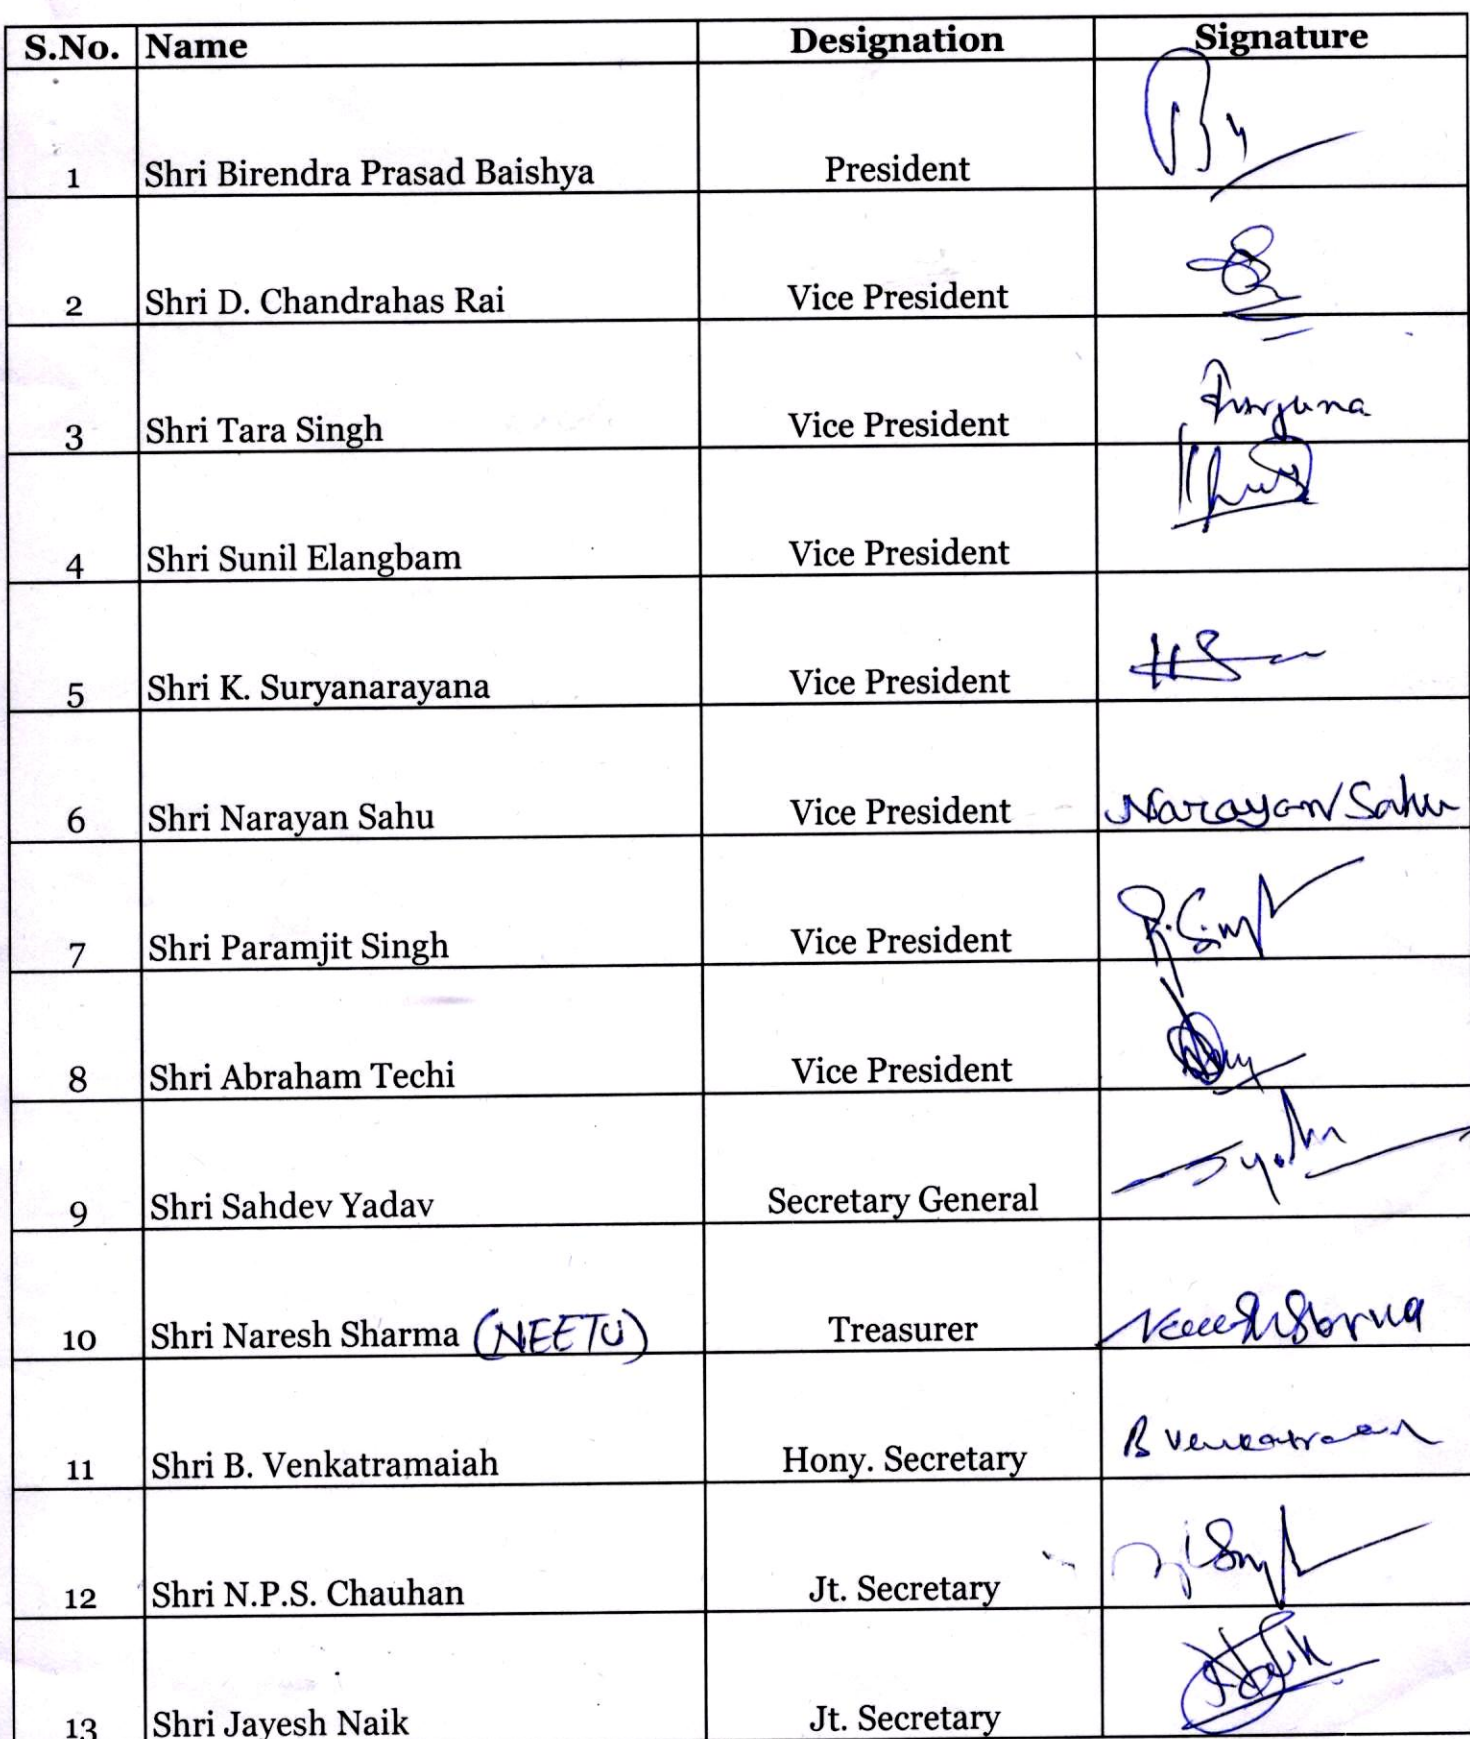 S.No. Name Designation Signature
1 Shri Birendra Prasad Baishya President
2 Shri D. Chandrahas Rai Vice President
3 Shri Tara Singh Vice President
4 Shri Sunil Elangbam Vice President
5 Shri K. Suryanarayana Vice President
6 Shri Narayan Sahu Vice President Narayan Sahu
7 Shri Paramjit Singh Vice President
8 Shri Abraham Techi Vice President
9 Shri Sahdev Yadav Secretary General
10 Shri Naresh Sharma (NEETU) Treasurer
11 Shri B. Venkatramaiah Hony. Secretary
12 Shri N.P.S. Chauhan Jt. Secretary
13 Shri Jayesh Naik Jt. Secretary